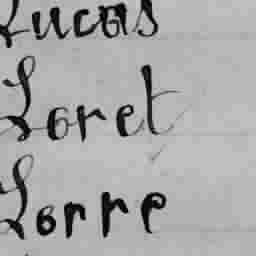 Lucas
Loret
Lorre